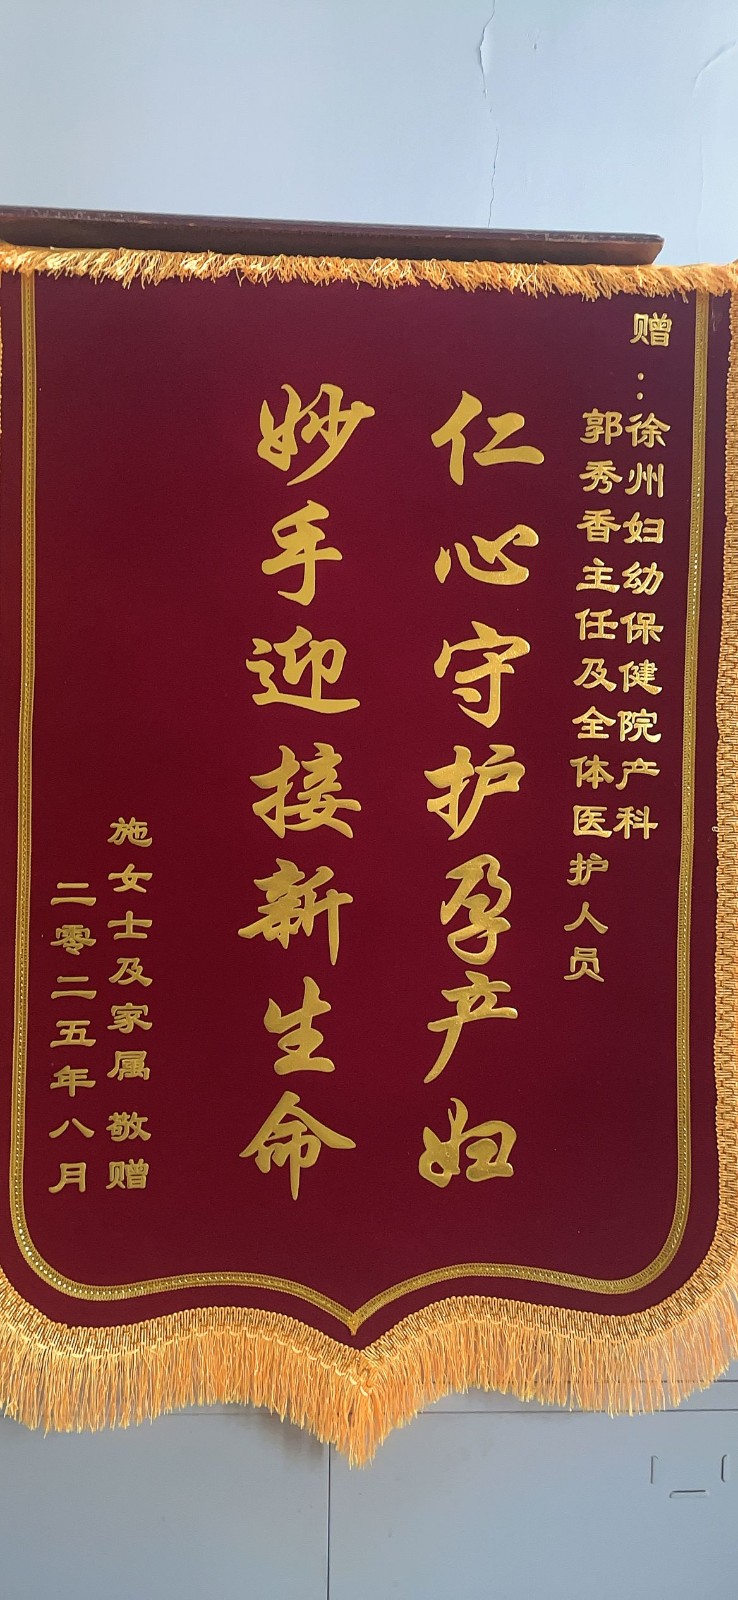 赠：徐州妇幼保健院产科
郭秀香主任及全体医护人员
仁心守护孕产妇
妙手迎接新生命
施女士及家属 敬赠
二零二五年八月